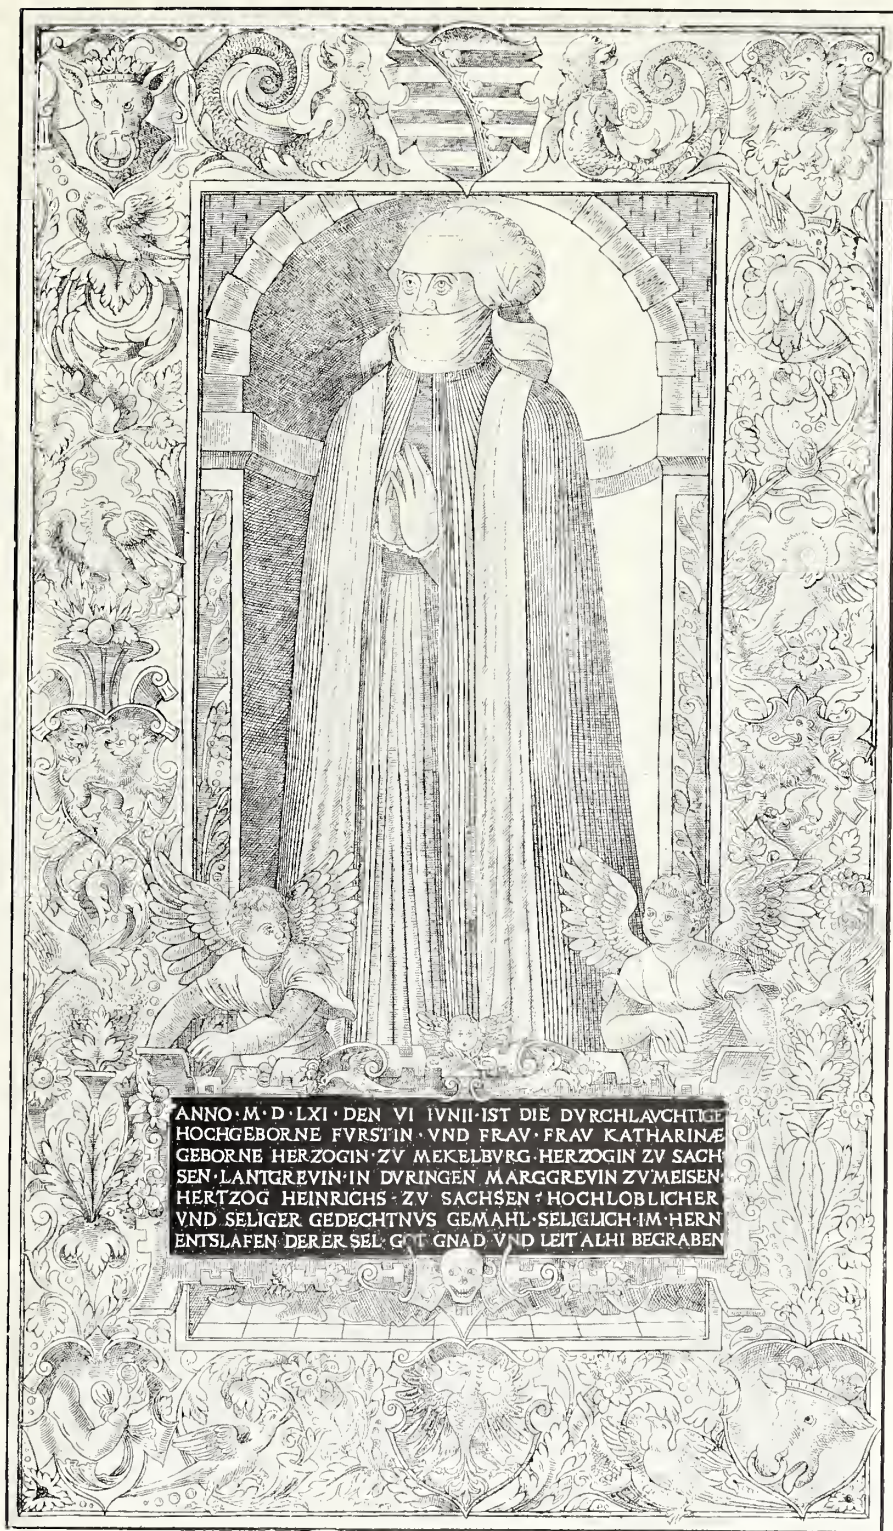 ANNO·M·D·LXI·DEN VI IVNII·IST DIE DVRCHLAVCHTIGE
HOCHGEBORNE FVRSTIN·VND FRAV·FRAV KATHARINÆ
GEBORNE HERZOGIN·ZV MEKELBVRG·HERZOGIN ZV SACH
SEN·LANTGREVIN·IN DVRINGEN MARGGREVIN ZV MEISEN
HERTZOG HEINRICHS·ZV SACHSEN·HOCHLOBLICHER
VND SELIGER GEDECHTNVS GEMAHL·SELIGLICH·IM·HERN
ENTSLAFEN DERER SEL·GOT GNAD VND LEIT ALHI BEGRABEN